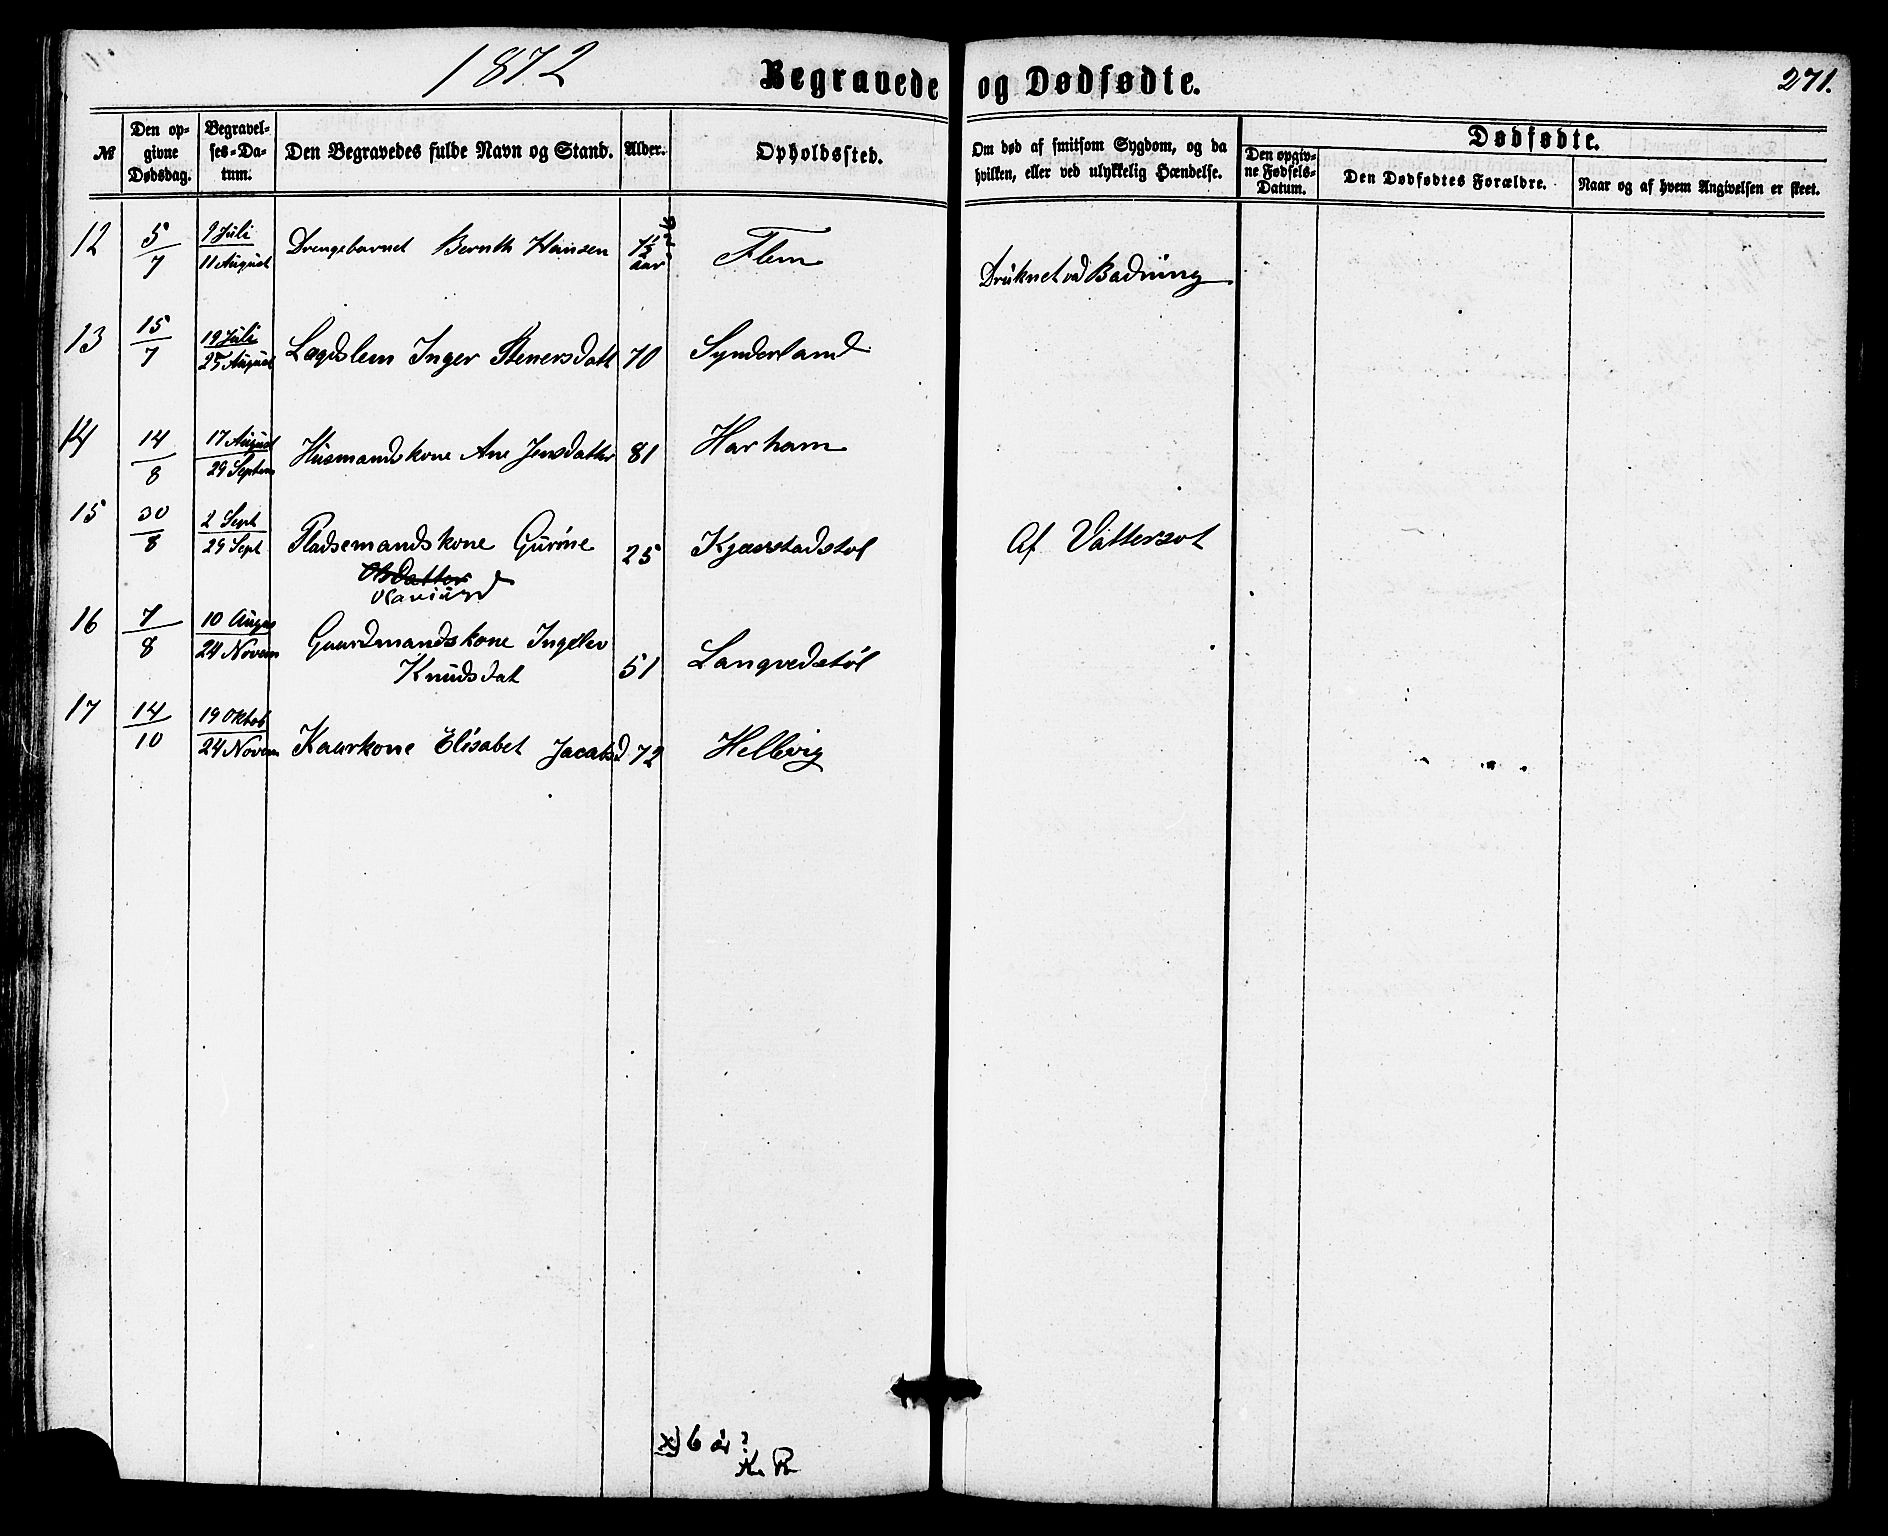 1872
Begravede og Dødfødte.
271.
№
Den op-
givne
Dødsdag.
Begravel-
ses-Da-
tum.
Den Begravedes fulde Navn og Stand.
Alder.
Opholdssted.
Om død af smitsom Sygdom, og da
hvilken, eller ved ulykkelig Hændelse.
Dødfødte.
Den opgiv-
ne Fødsels-
Datum.
Den Dødfødtes Forældre.
Naar og af hvem Angivelsen er skeet.
12 5/7 9 Juli
11 August Drengebarnet Bernth Hansen 7½ aar Flem Druknet ved Badning
13 15/7 19 Juli
25 August Lægdslem Inger Stenersdatt 70 Synderland
14 14/8 17 August
29 Septem Husmandskone Ane Jensdatter 81 Harham
15 30/8 2 Sept
29 Sept Pladsemandskone Gurine 25 Kjærstadstøl Af Vattersot
Olsdatter
16 7/8 10 Augus
24 Novem Gaardmandskone Ingelev
Knudsdat 51 Langvedstøl
17 14/10 19 Oktob
24 Novem Kaarkone Elisabet Jacobsd 72 Hellevig
x) 6 år?